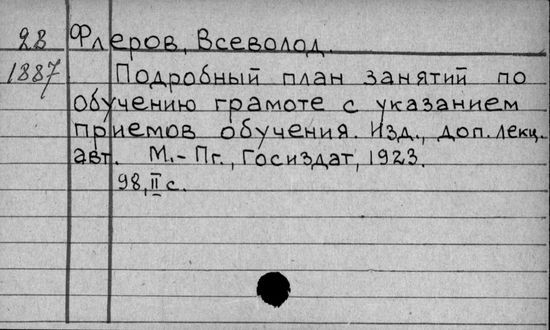 28 Флеров, Всеволод.
1887 Подробный план занятий по
обучению грамоте с указанием
приемов обучения. Изд., доп. лекц.
авт. М.-Пг., Госиздат, 1923.
98, II с.